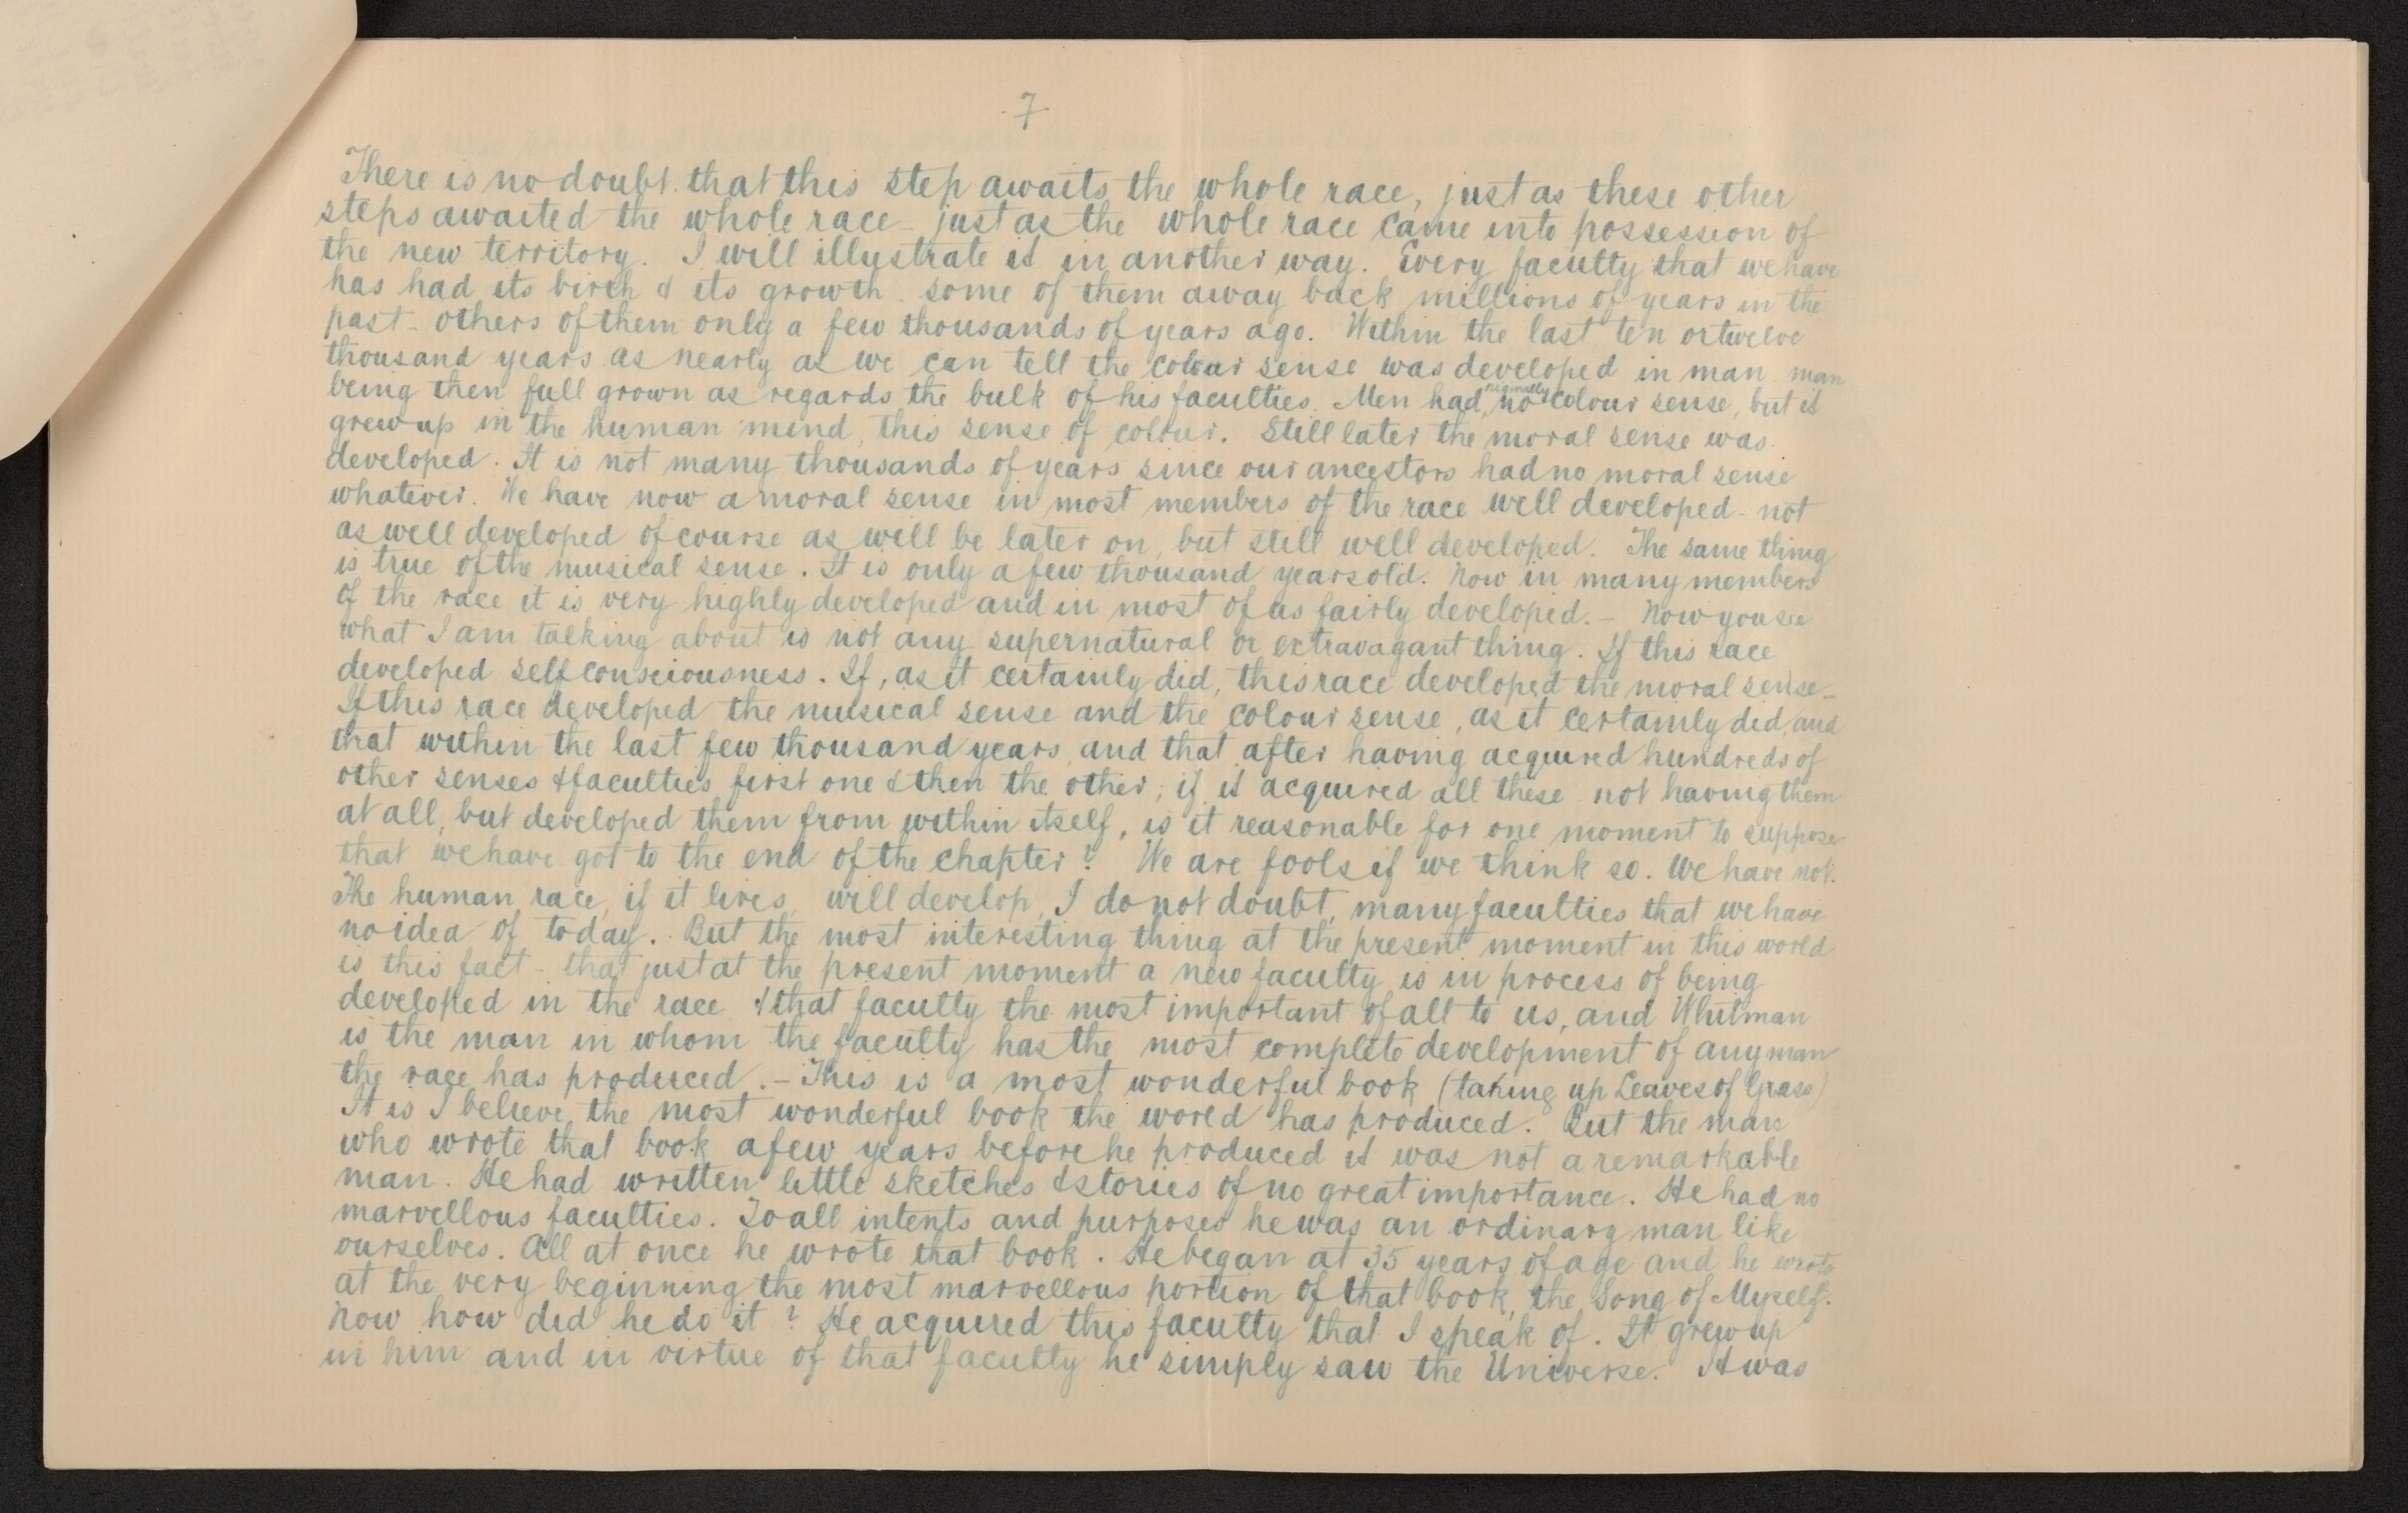 7
There is no doubt that this step awaits the whole race, just as these other
steps awaited the whole race - just as the whole race came into possession of
the new territory. I will illustrate it in another way. Every faculty that we have
has had its birth & its growth. some of them away back millions of years in the
past - others of them only a few thousands of years ago. Within the last ten or twelve
thousand years as nearly as we can tell the colour sense was developed in man man
being then full grown as regards the bulk of his faculties. Men had originally no colour sense, but it
grew up in the human mind, this sense of colour. Still later the moral sense was
developed. It is not many thousands of years since our ancestors had no moral sense
whatever. We have now a moral sense in most members of the race well developed - not
as well developed of course as will be later on, but still well developed. The same thing
is true of the musical sense. It is only a few thousand years old. Now in many members
of the race it is very highly developed and in most of us fairly developed. - Now you see
what I am talking about is not any supernatural or extravagant thing. If this race
developed self consciousness. If, as it certainly did, this race developed the moral sense -
If this race developed the musical sense and the colour sense, as it certainly did, and
that within the last few thousand years, and that after having acquired hundreds of
other senses & faculties, first one & then the other; if it acquired all these not having them
at all, but developed them from within itself, is it reasonable for one moment to suppose
that we have got to the end of the chapter? We are fools if we think so. We have not.
The human race, if it lives, will develop, I do not doubt, many faculties that we have
no idea of today. But the most interesting thing at the present moment in this world
is this fact - that just at the present moment a new faculty is in process of being
developed in the race & that faculty the most important of all to us, and Whitman
is the man in whom the faculty has the most complete development of any man
the race has produced. - This is a most wonderful book (taking up Leaves of Grass)
It is I believe the most wonderful book the world has produced. But the man
who wrote that book a few years before he produced it was not a remarkable
man. He had written little sketches & stories of no great importance. He had no
marvellous faculties. To all intents and purposes he was an ordinary man like
ourselves. All at once he wrote that book. He began at 35 years of age and he wrote
at the very beginning the most marvellous portion of that book, the Song of Myself.
Now how did he do it? He acquired this faculty that I speak of. It grew up
in him and in virtue of that faculty he simply saw the Universe. It was